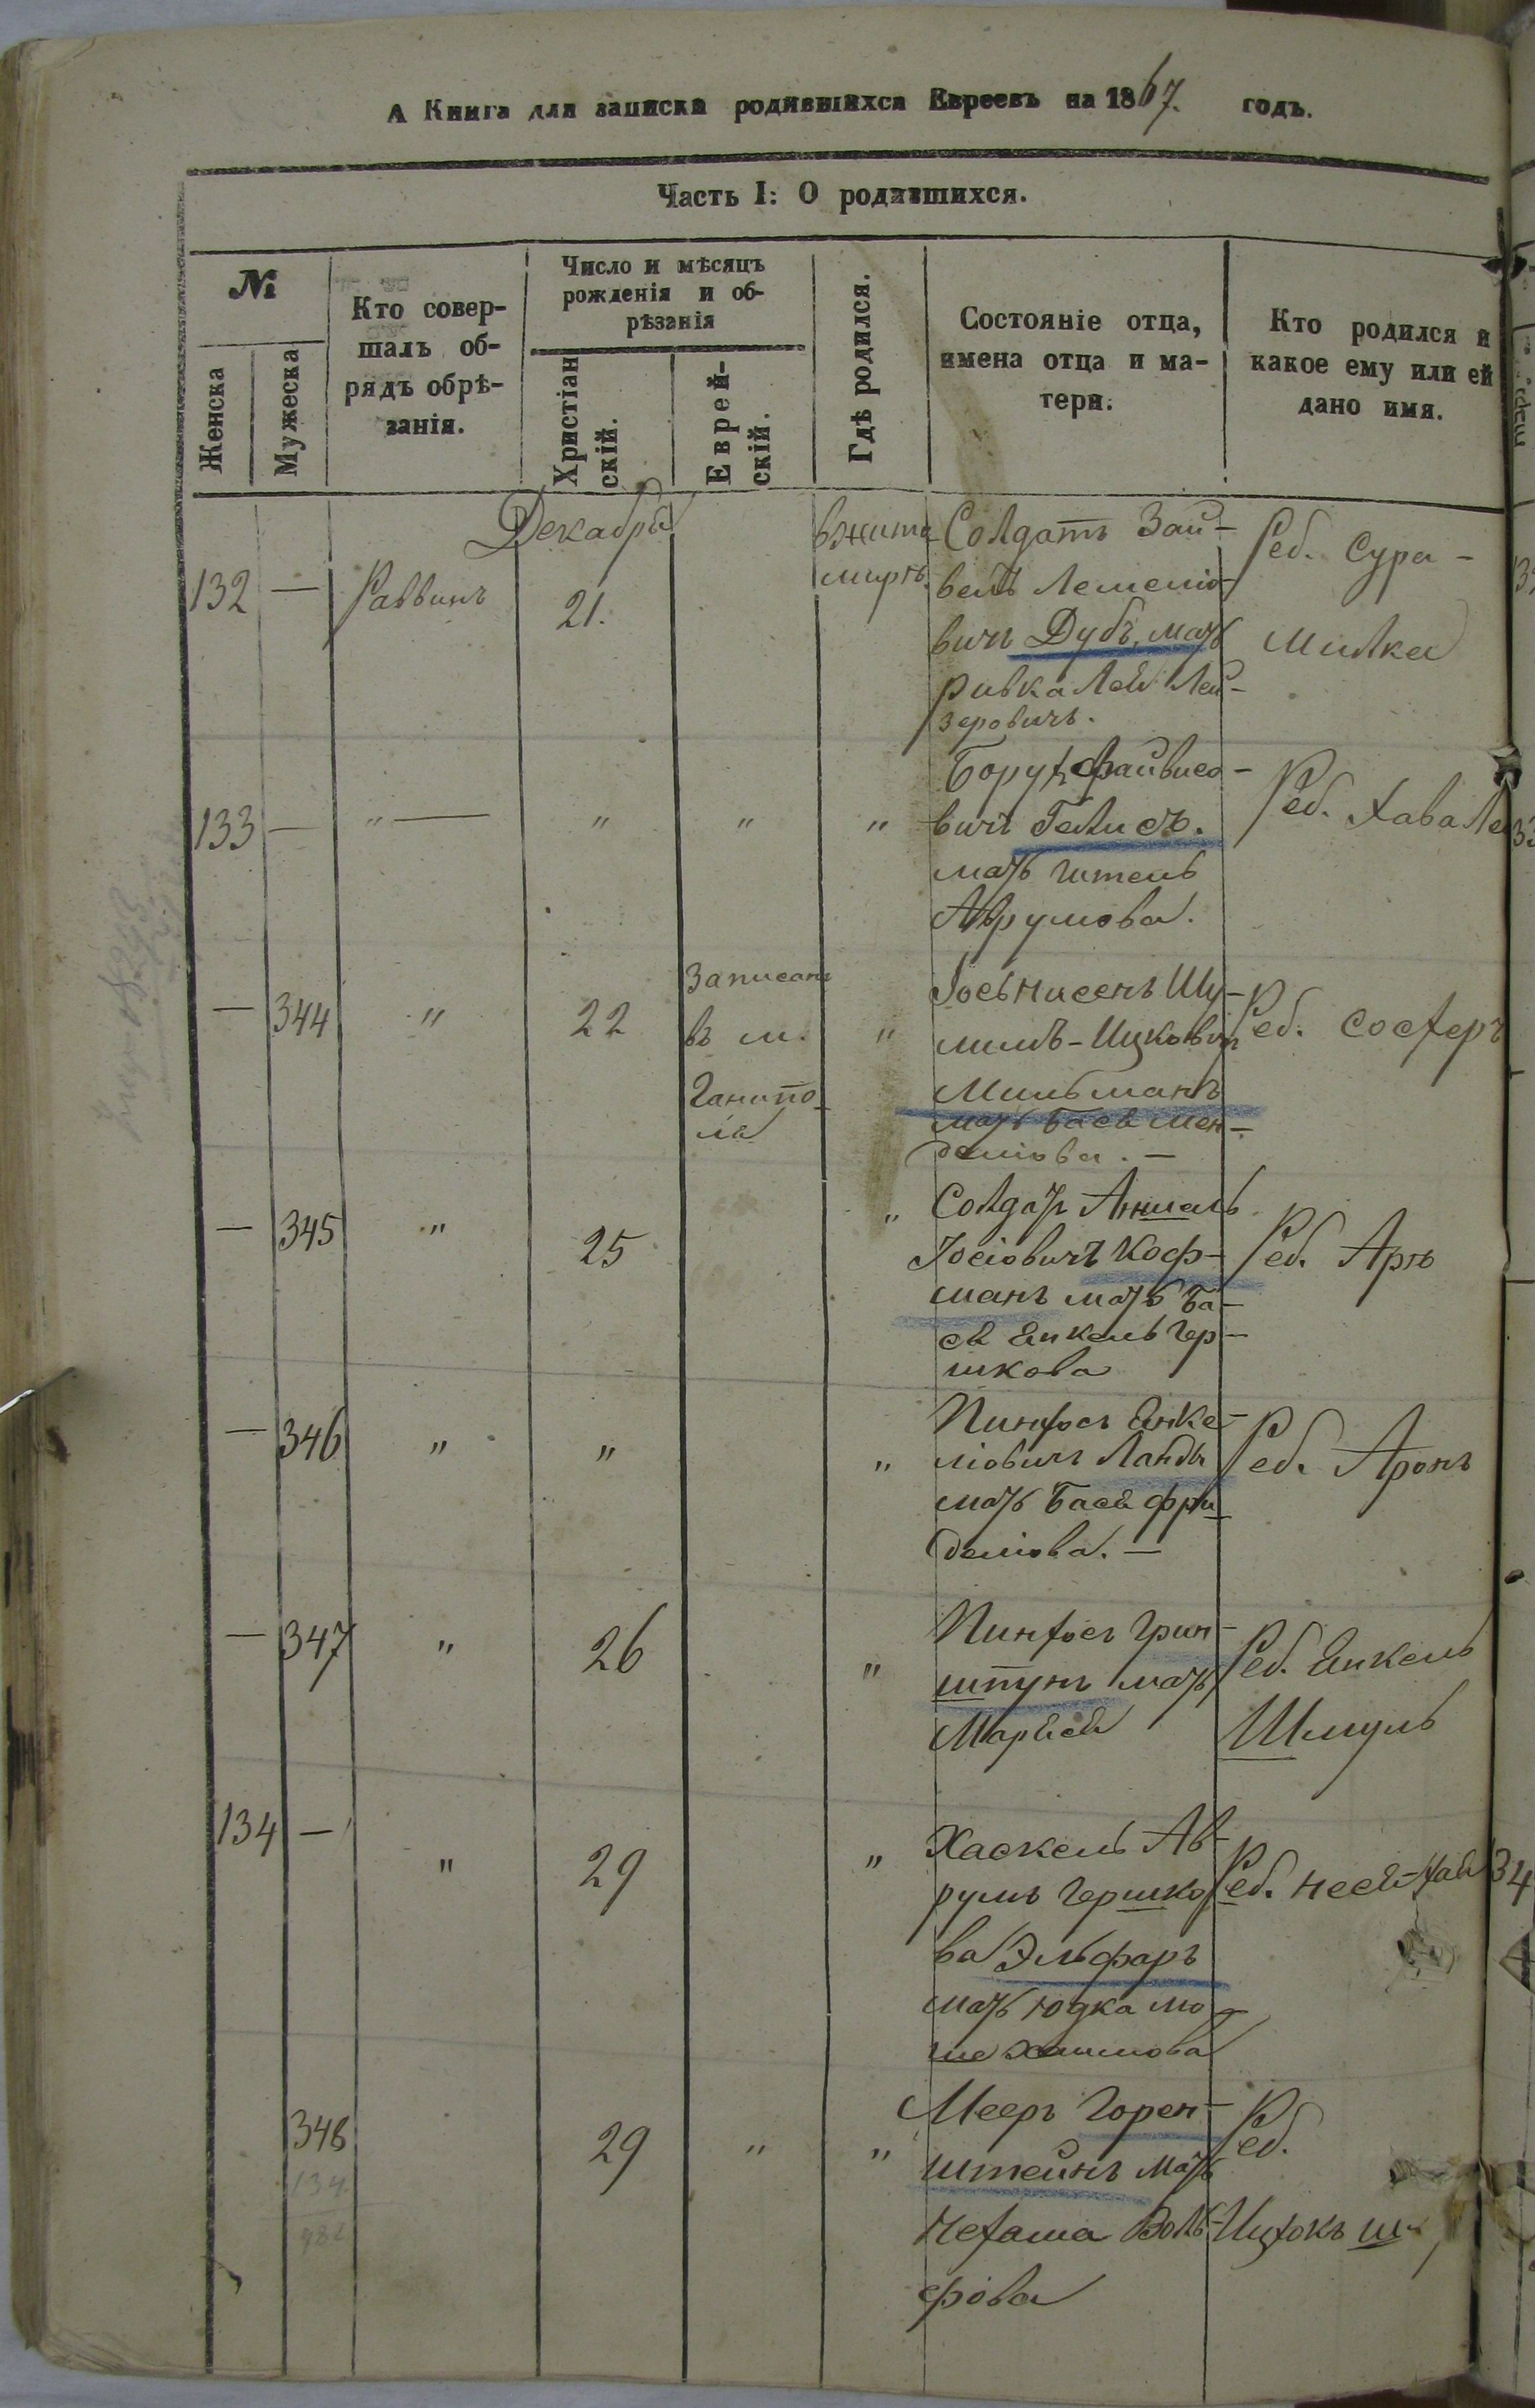 А Книга для записки родившихся Евреевъ на 1867. годъ.
Часть I: О родившихся.
№
Женска
Мужеска
Кто совер-
шалъ об-
рядъ обрѣ-
занія.
Число и мѣсяцъ
рожденія и об-
рѣзанія
Христіан
скій.
Еврей-
скій.
Гдѣ родился.
Состояніе отца,
имена отца и ма-
тери.
Кто родился и
какое ему или ей
дано имя.
Декабря
132 — Раввинъ 21.
вжито
мирѣ.
Солдатъ Зай-
вель Лемеліо-
вичъ Дубъ, мать
Ривка Лея Лей-
зеровичъ.
Реб. Сура -
Милка
133 — " — " " "
Борух Файвисо-
вичъ Гелисъ.
мать
Аврумова.
Реб. Хава Ле
— 344 " 22
Записанъ
въ м.
Ганнопо-
ля
"
Іось Нисенъ Шу-
лимъ-Ицковичъ
Мильманъ
мать Бася Мен-
деліова. —
Реб. Сосхеръ
— 345 " 25 "
Солдатъ Аншель
Іосіовичъ Коф-
манъ мать Ба-
ся Енкель Гер-
шкова
Реб. Арѣ
— 346 " " "
Пинхосъ Енке-
ліовичъ Ланда
мать Бася Фри-
деліова. —
Реб. Аронъ
— 347 " 26 "
Пинхосъ Грин-
штупъ мать
Маріася
Реб. Енкель
Шмуль
134 — " 29 "
Хаскель Ав-
румъ Гершко-
ва Эльфаръ
мать Юдка Мо-
ше Хаимова
Реб. Нося-Хая
348 29 " "
134
482
Мееръ Горен-
штейнъ мать
Нехама Воль-
фова
Реб.
Ицхокъ